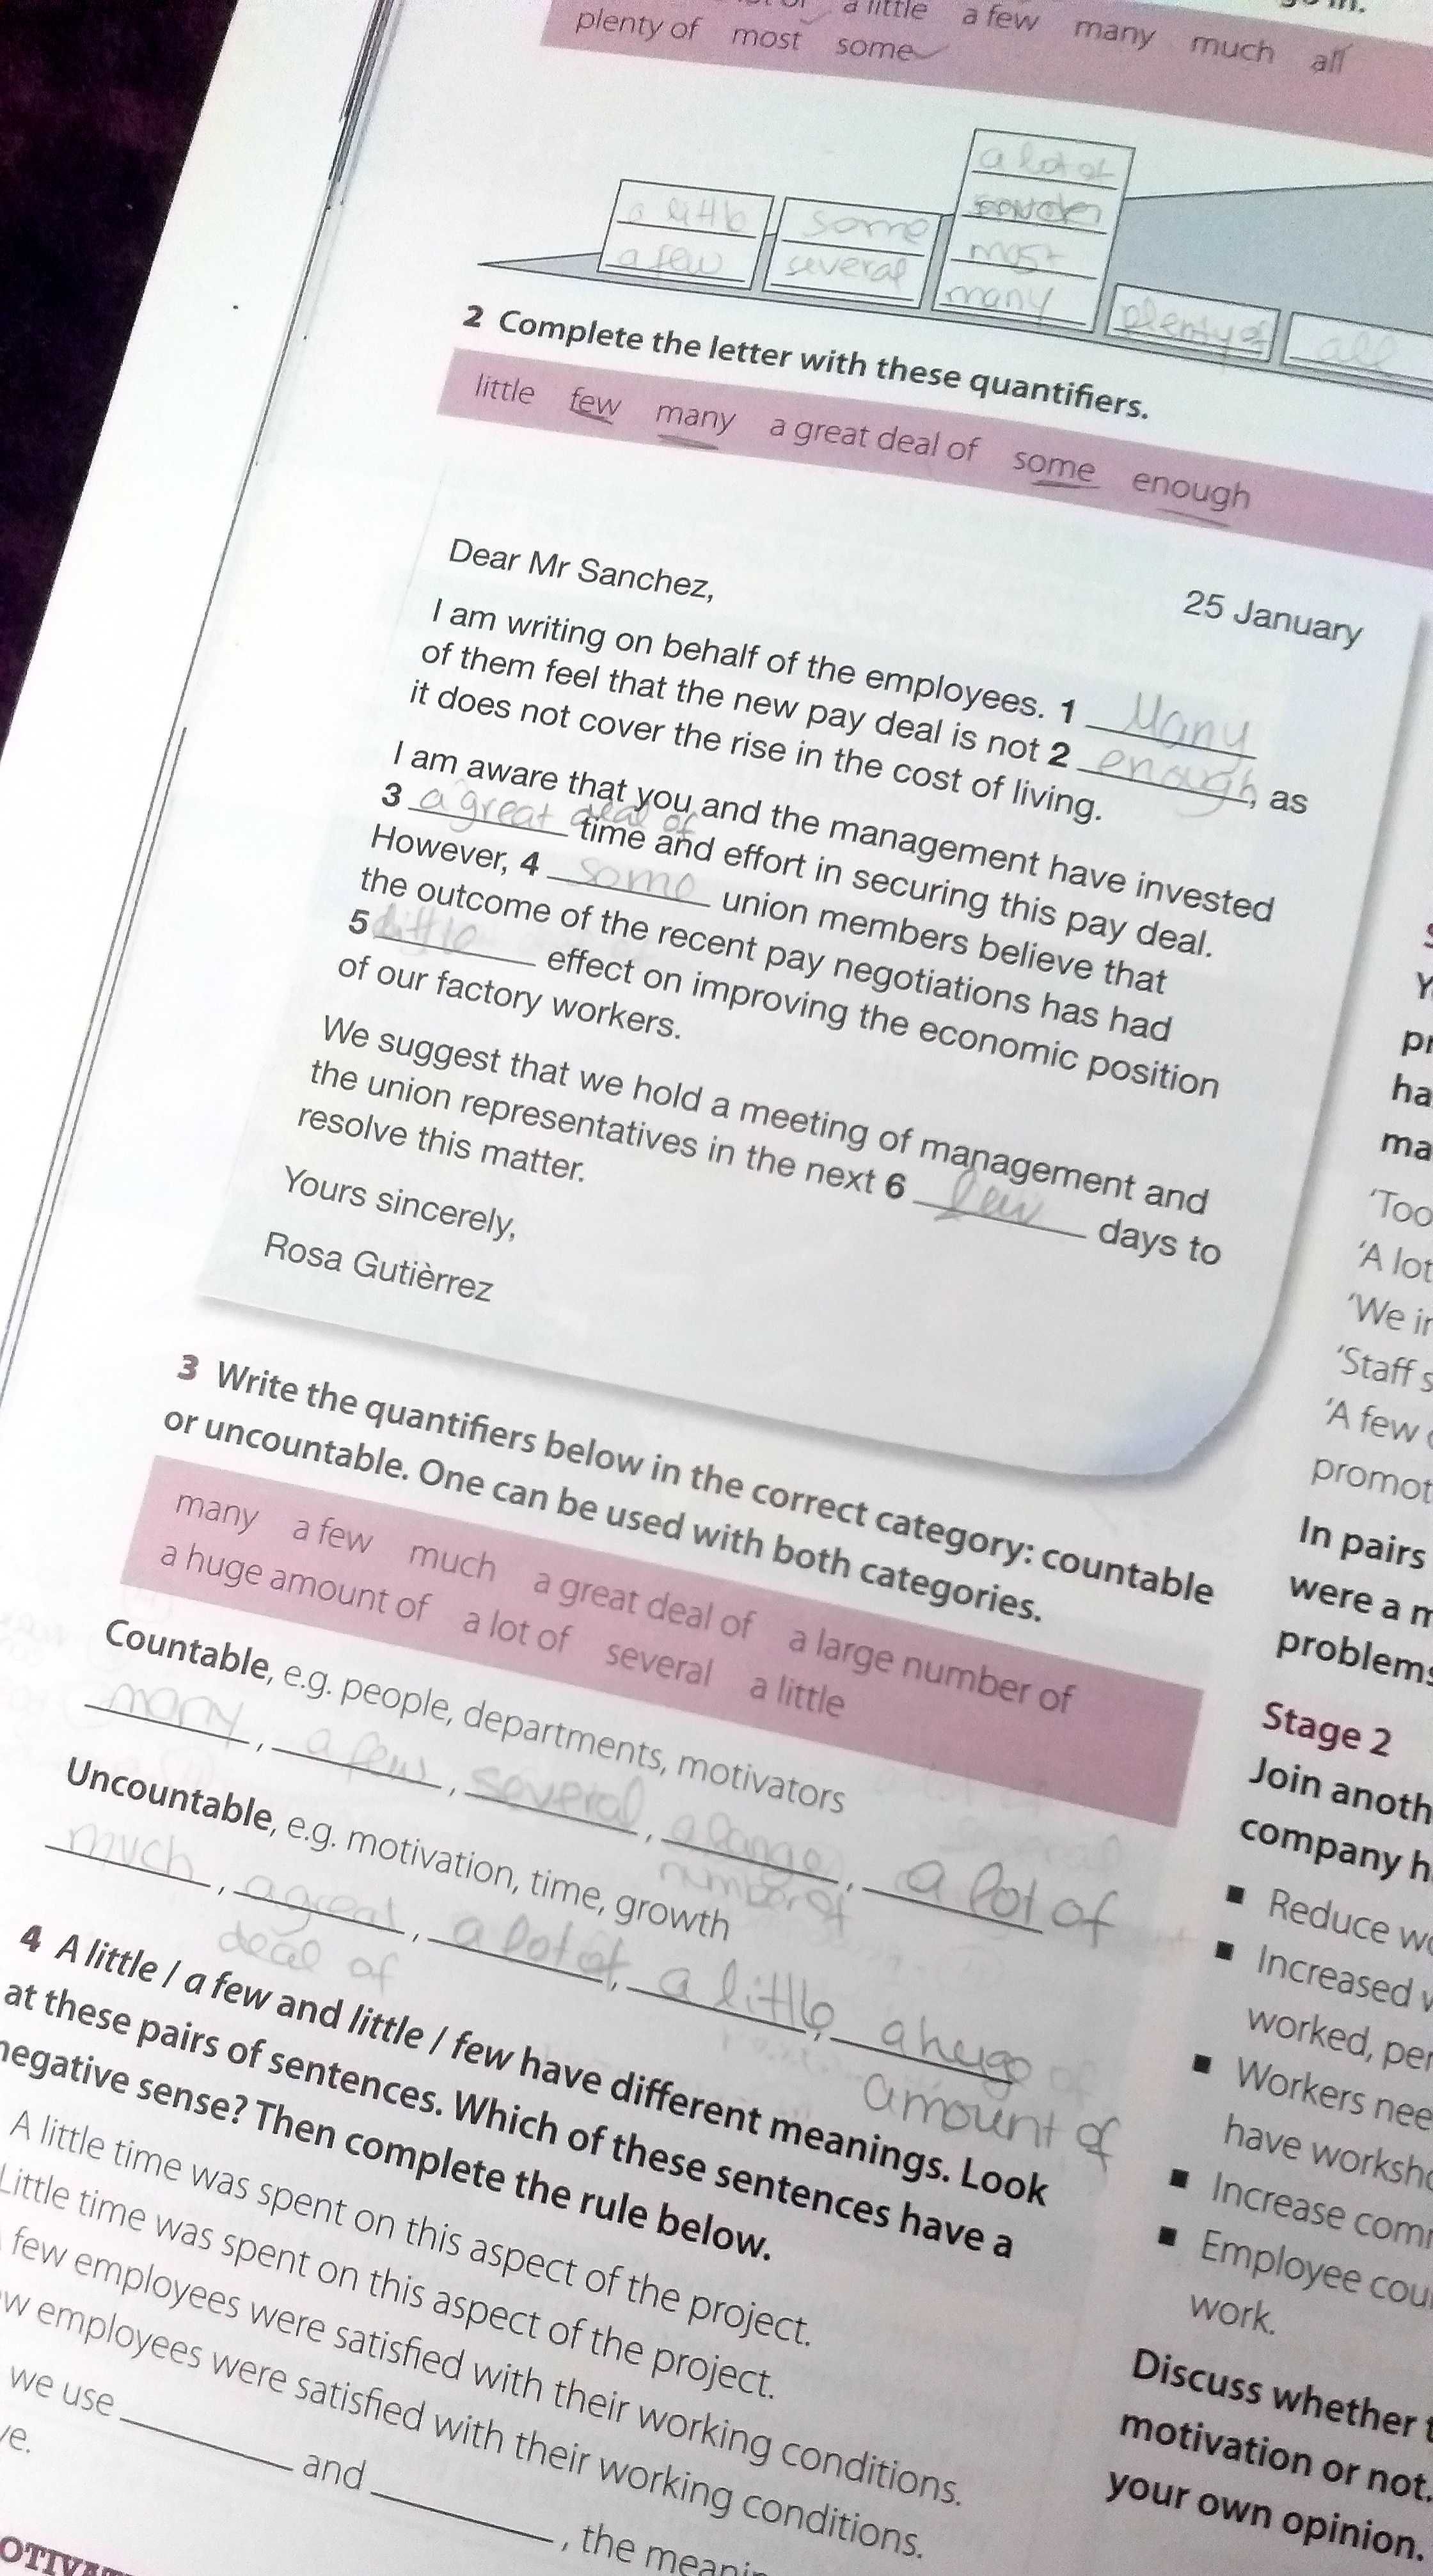 a little a few many much all
plenty of most some
a little
a few
some
several
a lot of
most
many
plenty of
all
2 Complete the letter with these quantifiers.
little few many a great deal of some enough
25 January
Dear Mr Sanchez,
I am writing on behalf of the employees. 1 Many
of them feel that the new pay deal is not 2 enough, as
it does not cover the rise in the cost of living.
I am aware that you and the management have invested
3 a great deal of time and effort in securing this pay deal.
However, 4 some union members believe that
the outcome of the recent pay negotiations has had
5 little effect on improving the economic position
of our factory workers.
We suggest that we hold a meeting of management and
the union representatives in the next 6 few days to
resolve this matter.
Yours sincerely,
Rosa Gutièrrez
3 Write the quantifiers below in the correct category: countable
or uncountable. One can be used with both categories.
many a few much a great deal of a large number of
a huge amount of a lot of several a little
Countable, e.g. people, departments, motivators
many, a few, several, a large number of, a lot of
Uncountable, e.g. motivation, time, growth
much, a great deal of, a lot of, a little, a huge amount of
4 A little / a few and little / few have different meanings. Look
at these pairs of sentences. Which of these sentences have a
negative sense? Then complete the rule below.
A little time was spent on this aspect of the project.
Little time was spent on this aspect of the project.
few employees were satisfied with their working conditions.
employees were satisfied with their working conditions.
we use ___ and ___, the
'Too
'A lot
'We
'Staff
'A few
In pairs
were a
Stage 2
Join
company
■ Reduce
■ Increased
worked,
■ Workers
have
■ Increase
■ Employee
work.
Discuss whether
motivation or not.
your own opinion.